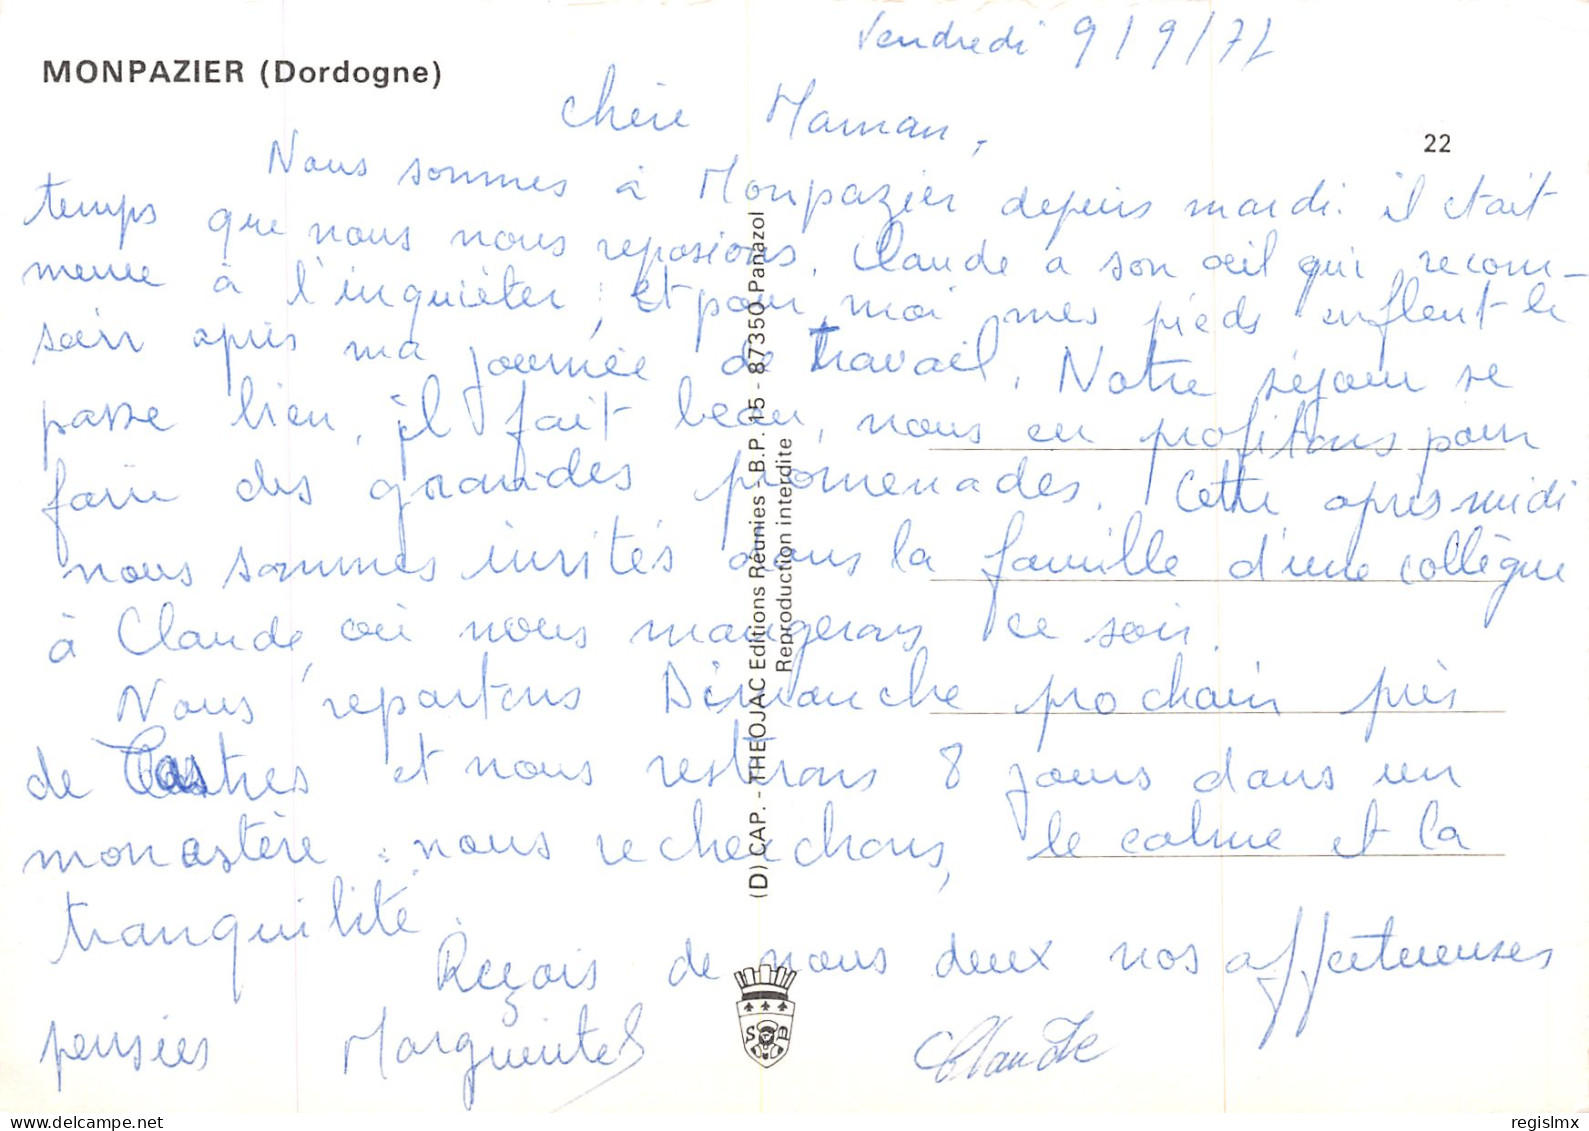 Vendredi 9/9/77
MONPAZIER (Dordogne)
22
Chère Maman,
Nous sommes à Monpazier depuis mardi. il était
temps que nous nous reposions. Claude a son oeil qui recom-
mence à l'inquiéter, Et pour moi mes pieds enflent le
soir après ma journée de Travail. Notre séjour se
passe bien, il fait beau, nous en profitons pour
faire des grandes promenades. Cette après midi
nous sommes invités dans la famille d'une collègue
à Claude, où nous mangerons ce soir.
Nous repartons Dimanche prochain près
de Castres et nous resterons 8 jours dans un
monastère. nous recherchons, le calme et la
tranquilité.
Reçois de nous deux nos affectueuses
pensées Marguerite Claude
(D) CAP. - THEOJAC Editions Réunies - B.P. 15 - 87350 Panazol
Reproduction interdite
S M
delcampe.net
regislmx